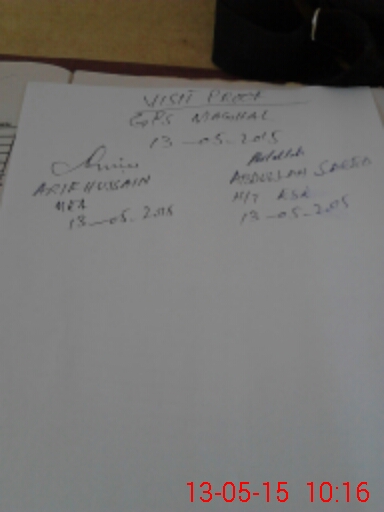 VISIT PROOF
GPS MAGHAL
13-05-2015
ARIF HUSSAIN
MEA
13-05-2015
Abdullah
ABDULLAH SAEED
H/T
13-05-2015
13-05-15 10:16